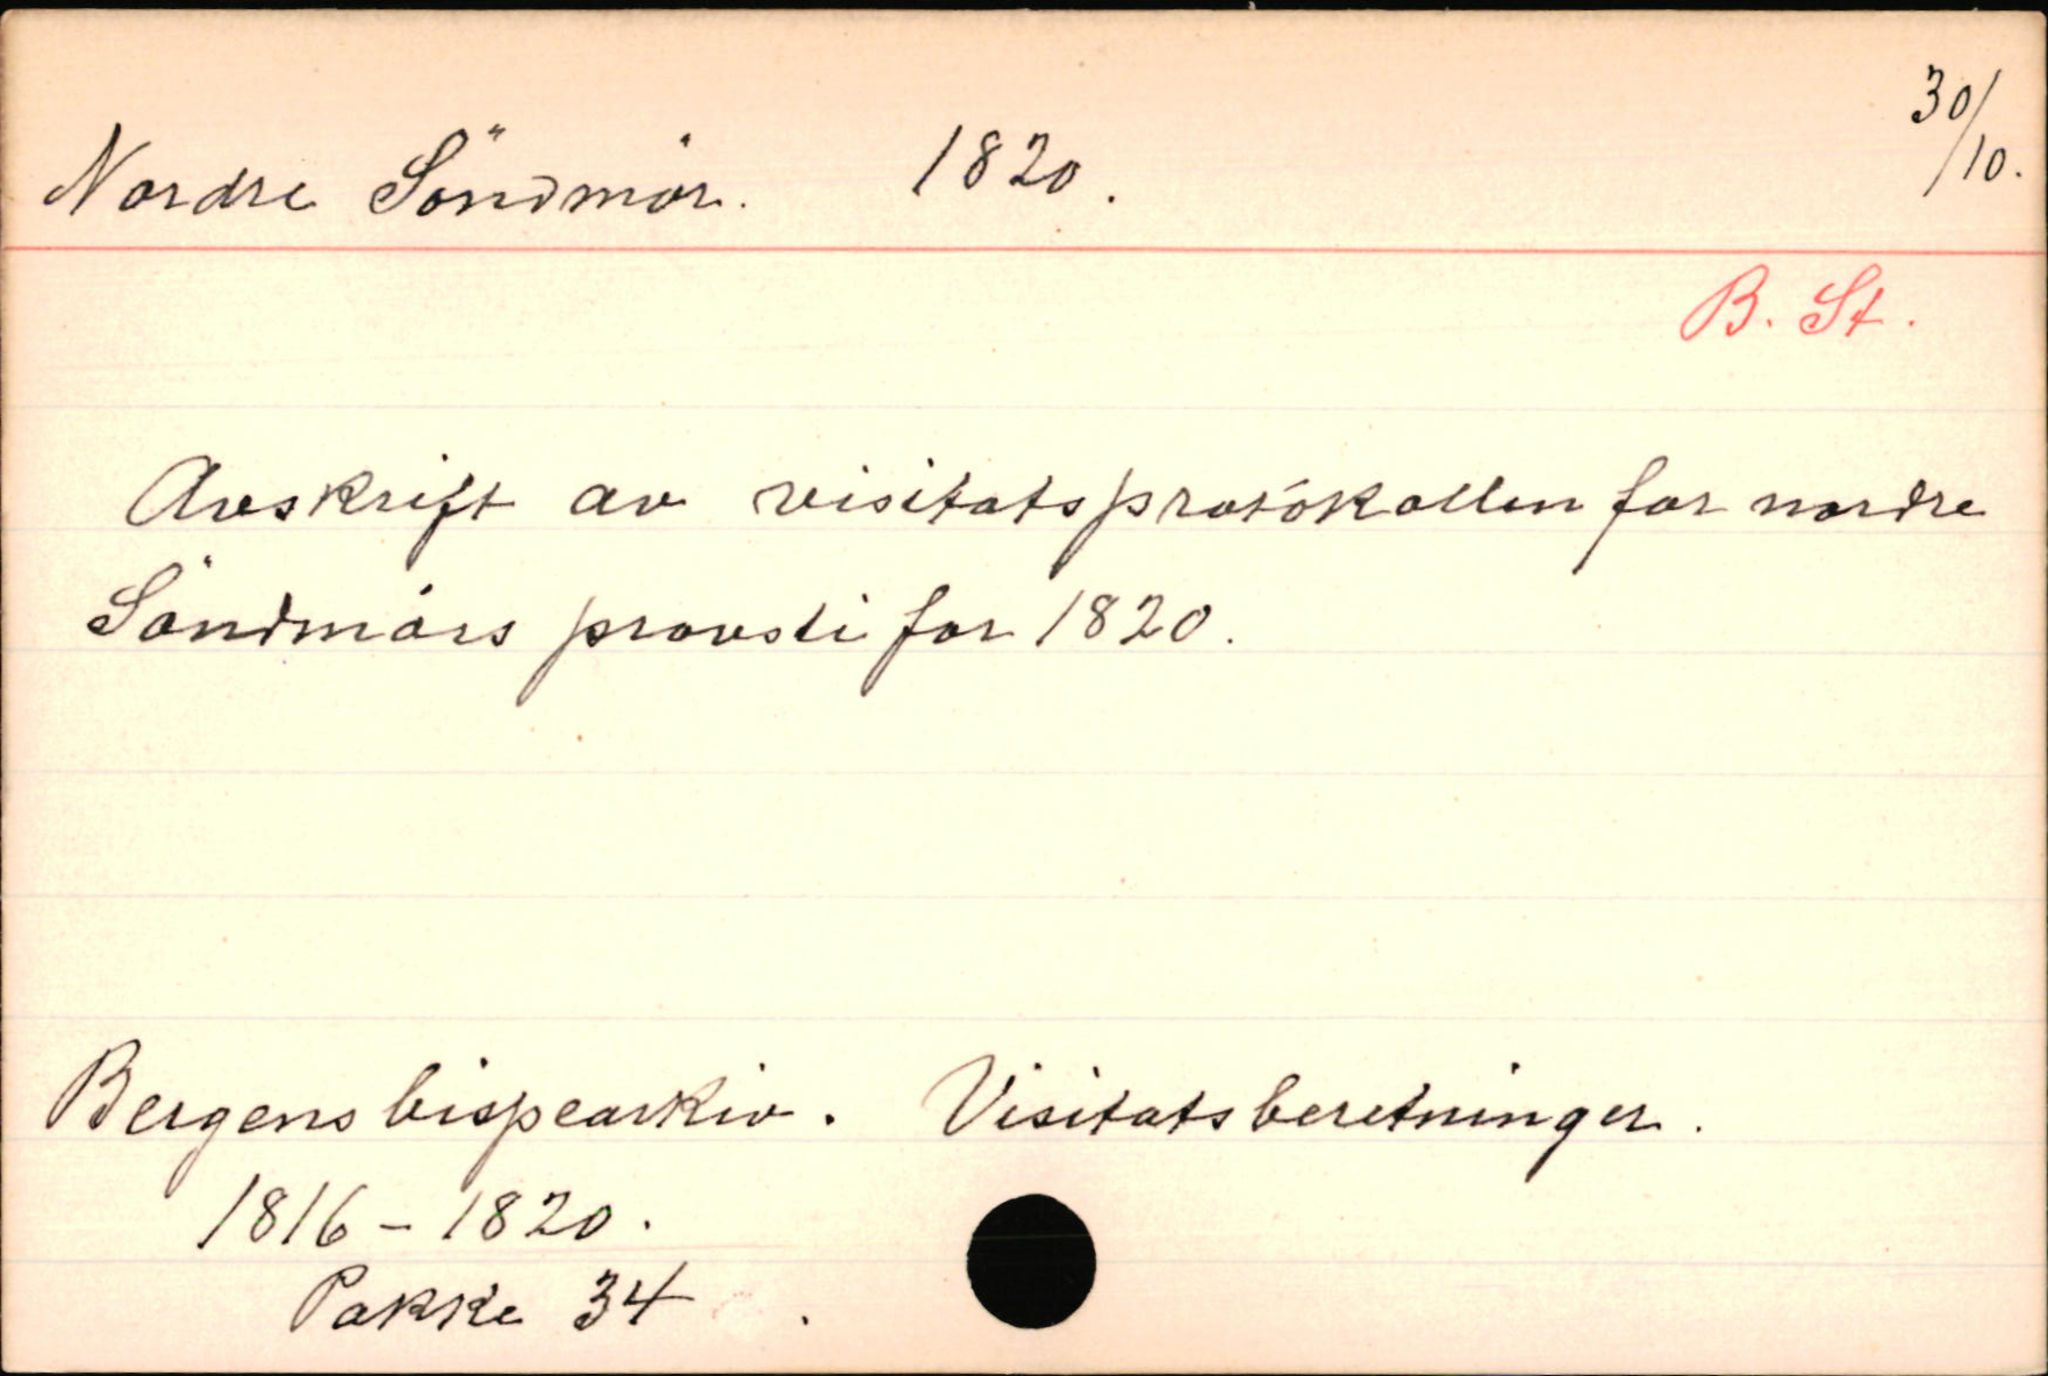 Nordre Söndmör. 1820. 30/10.
B. St.
Avskrift av visitatsprotokollen for nordre
Söndmörs provsti for 1820.
Bergens bispearkiv. Visitatsberetninger.
1816-1820.
Pakke 34.